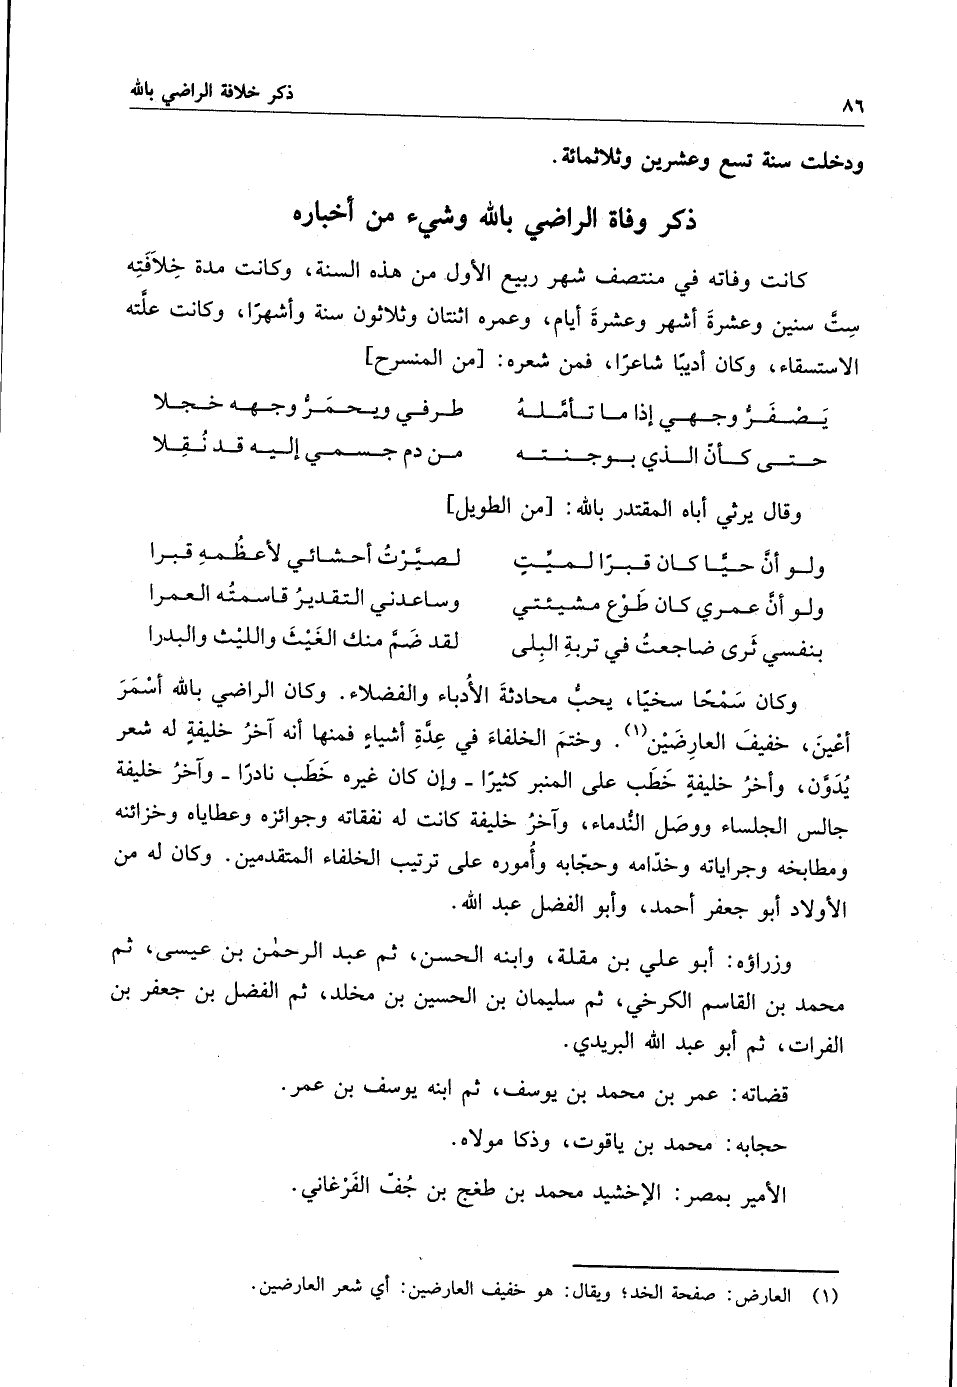 ٨٦ ذكر خلافة الراضي بالله
ودخلت سنة تسع وعشرين وثلاثمائة.
ذكر وفاة الراضي بالله وشيء من أخباره
كانت وفاته في منتصف شهر ربيع الأول من هذه السنة، وكانت مدة خِلاَفَتِه
سِتَّ سنين وعشرةَ أشهر وعشرةَ أيام، وعمره اثنتان وثلاثون سنة وأشهرًا، وكانت علَّته
الاستسقاء، وكان أديبًا شاعرًا، فمن شعره: [من المنسرح]
يَصْفَرُّ وجهي إذا ما تأمَّله طرفي ويحمَرُّ وجهه خجلا
حتى كأنّ الذي بوجنته من دم جسمي إليه قد نُقِلا
وقال يرثي أباه المقتدر بالله: [من الطويل]
ولو أنَّ حيًّا كان قبرًا لميِّتٍ لصيَّرْتُ أحشائي لأعظُمهِ قبرا
ولو أنَّ عمري كان طَوْع مشيئتي وساعدني التقديرُ قاسمتُه العمرا
بنفسي ثَرى ضاجعتُ في تربةِ البِلى لقد ضَمَّ منك الغَيْثَ والليْث والبدرا
وكان سَمْحًا سخيًا، يحبُّ محادثةَ الأُدباء والفضلاء. وكان الراضي بالله أسْمَرَ
أعْينَ، خفيفَ العارِضَيْن(١). وختمَ الخلفاءَ في عِدَّةِ أشياءٍ فمنها أنه آخرُ خليفةٍ له شعر
يُدَوَّن، وأخرُ خليفةٍ خَطَب على المنبر كثيرًا - وإن كان غيره خَطَب نادرًا - وآخرُ خليفة
جالس الجلساء ووصَل النُّدماء، وآخرُ خليفة كانت له نفقاته وجوائزه وعطاياه وخزائنه
ومطابخه وجراياته وخدّامه وحجّابه وأُموره على ترتيب الخلفاء المتقدمين. وكان له من
الأولاد أبو جعفر أحمد، وأبو الفضل عبد الله.
وزراؤه: أبو علي بن مقلة، وابنه الحسن، ثم عبد الرحمٰن بن عيسى، ثم
محمد بن القاسم الكرخي، ثم سليمان بن الحسين بن مخلد، ثم الفضل بن جعفر بن
الفرات، ثم أبو عبد الله البريدي.
قضاته: عمر بن محمد بن يوسف، ثم ابنه يوسف بن عمر.
حجابه: محمد بن ياقوت، وذكا مولاه.
الأمير بمصر: الإخشيد محمد بن طغج بن جُفّ الفَرْغاني.
(١) العارض: صفحة الخد؛ ويقال: هو خفيف العارضين: أي شعر العارضين.